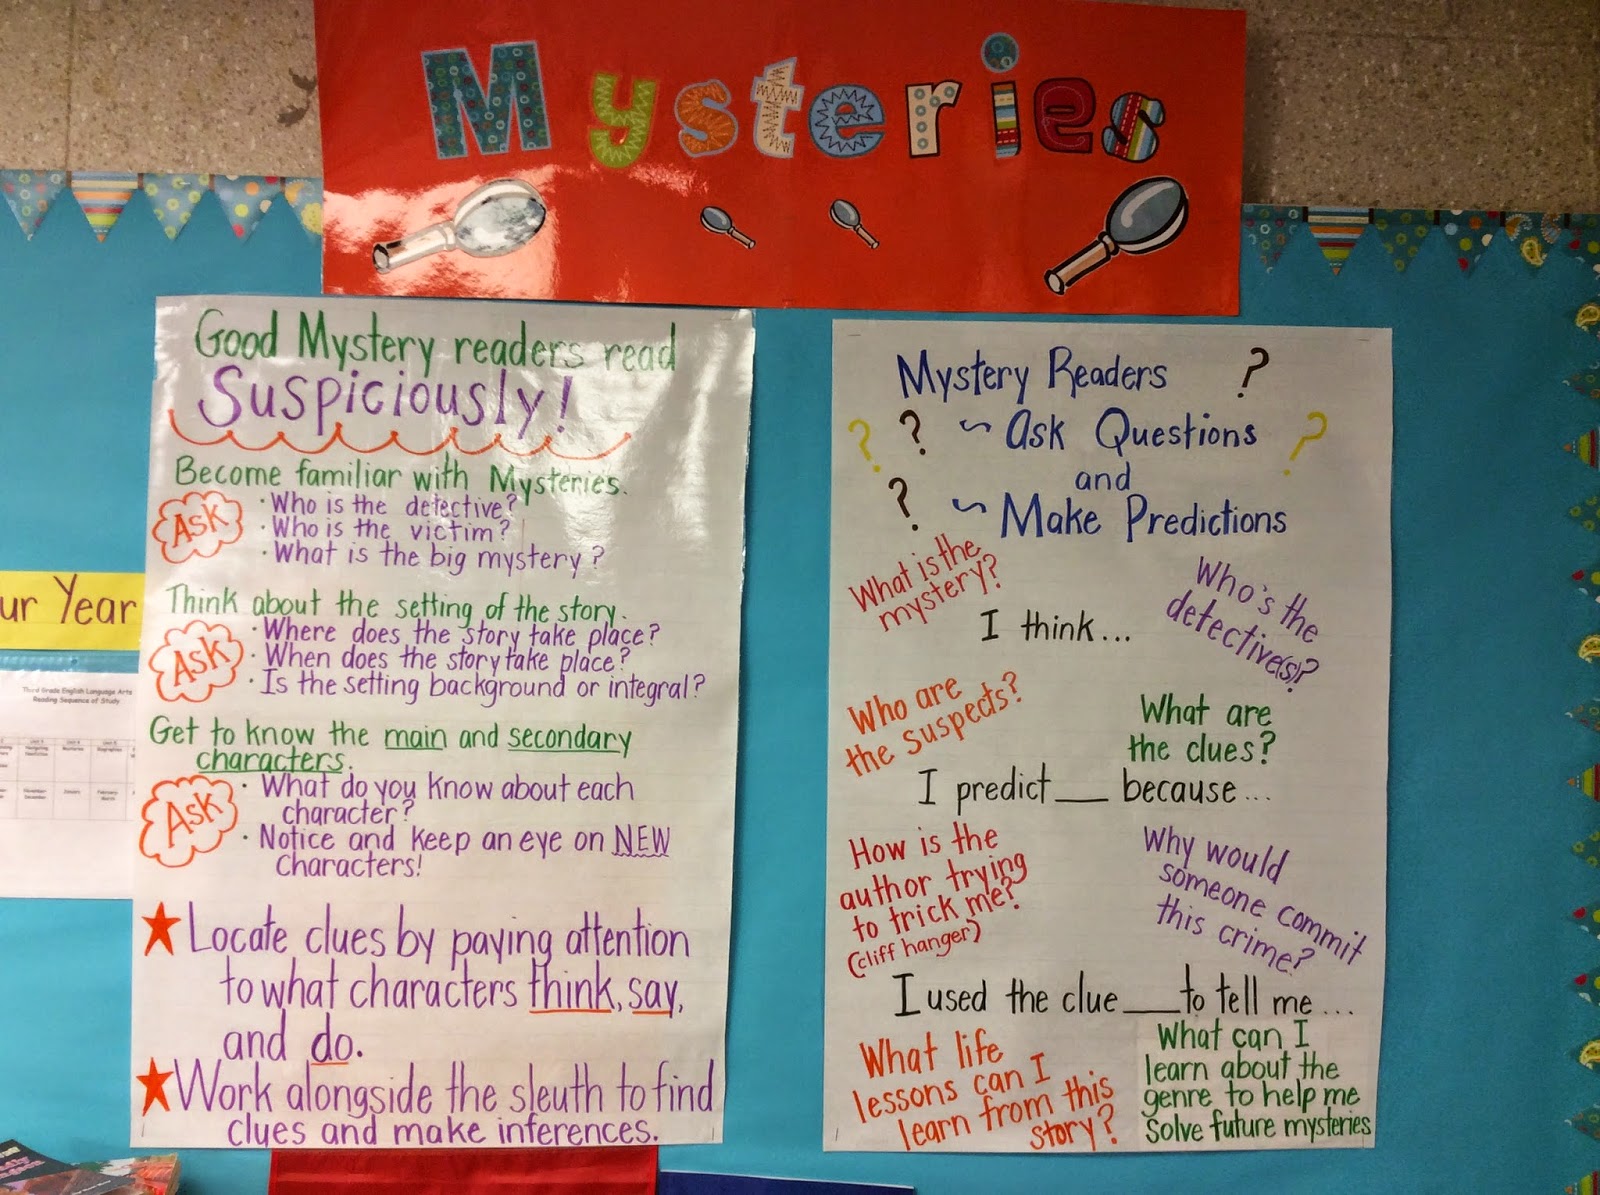 Mysteries
Good Mystery readers read
Suspiciously!
Become familiar with Mysteries.
Ask
· Who is the detective?
· Who is the victim?
· What is the big mystery?
Think about the setting of the story.
Ask
· Where does the story take place?
· When does the story take place?
· Is the setting background or integral?
Get to know the main and secondary
characters.
Ask
· What do you know about each
character?
· Notice and keep an eye on NEW
Characters!
★ Locate clues by paying attention
to what characters think, say,
and do.
★ Work alongside the sleuth to find
clues and make inferences.
Mystery Readers ?
? ? ~ Ask Questions ?
and
? ~ Make Predictions
What is the
mystery?
Who's the
detective(s)?
I think...
Who are
the suspects?
What are
the clues?
I predict ___ because...
How is the
author trying
to trick me?
(cliff hanger)
Why would
someone commit
this crime?
I used the clue ___ to tell me...
What life
lessons can I
learn from this
story?
What can I
learn about the
genre to help me
Solve future mysteries
ur Year
Third Grade English Language Arts
Reading Sequence of Study